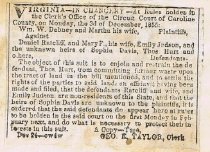 VIRGINIA—IN CHANCERY—At Rules holden in
the Clerk's Office of the Circuit Court of Caroline
County, on Monday, the 3d of December, 1855:
Wm. W. Dabney and Martha his wife, Plaintiffs,
Against
Daniel Ratcliff and Mary F. his wife, Emily Judson, and
the unknown heirs of Sophia Davis, Thos. Hart and
Defendants.
The object of this suit is to enjoin and restrain the de-
fendant, Thos. Hart, from committing further waste upon
the tract of land in the bill mentioned, and to settle the
rights of the parties to said land: an affidavit having been
made and filed, that the defendants Ratcliff and wife, and
Emily Judson are non-residents of this State, and that the
heirs of Sophia Davis are unknown to the plaintiffs, it is
ordered that the said defendants do appear here at rules
to be holden in the said court on the first Monday in Feb-
ruary next, and do what is necessary to protect their in-
terests in this suit. A Copy—Teste,
GEO. E. TAYLOR, Clerk